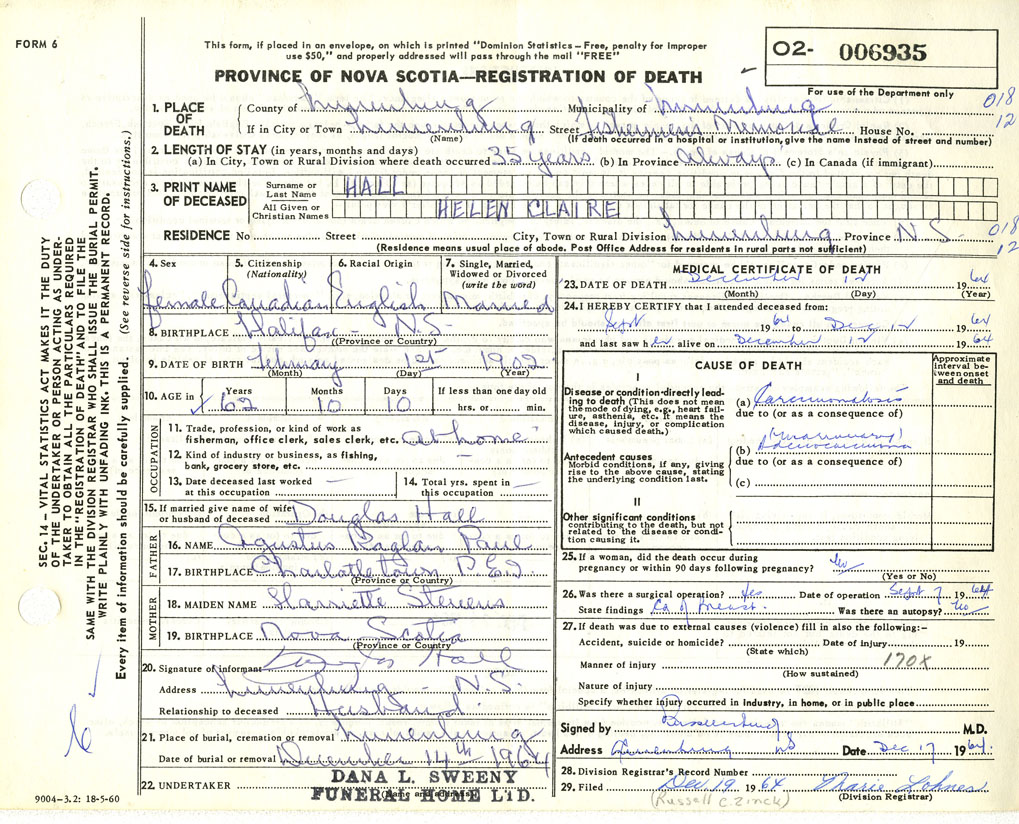 FORM 6
This form, if placed in an envelope, on which is printed "Dominion Statistics — Free, penalty for improper
use $50," and properly addressed will pass through the mail "FREE"
PROVINCE OF NOVA SCOTIA—REGISTRATION OF DEATH
O2- 006935
For use of the Department only
018
12
1. PLACE OF DEATH
County of Lunenburg Municipality of Lunenburg
If in City or Town Lunenburg Street Fishermen's Memorial House No.
(Name) (If death occurred in a hospital or institution, give the name instead of street and number)
2. LENGTH OF STAY (in years, months and days)
(a) In City, Town or Rural Division where death occurred 35 years (b) In Province always (c) In Canada (if immigrant)
3. PRINT NAME OF DECEASED
Surname or Last Name HALL
All Given or Christian Names HELEN CLAIRE
RESIDENCE No Street City, Town or Rural Division Lunenburg Province N.S.
018
12
(Residence means usual place of abode. Post Office Address for residents in rural parts not sufficient)
4. Sex Female
5. Citizenship (Nationality) Canadian
6. Racial Origin English
7. Single, Married, Widowed or Divorced (write the word) Married
8. BIRTHPLACE Halifax - N.S-
(Province or Country)
9. DATE OF BIRTH February 1st 1902
(Month) (Day) (Year)
10. AGE in Years 62 Months 10 Days 10 If less than one day old hrs. or min.
OCCUPATION
11. Trade, profession, or kind of work as fisherman, office clerk, sales clerk, etc. at home
12. Kind of industry or business, as fishing, bank, grocery store, etc. —
13. Date deceased last worked at this occupation —
14. Total yrs. spent in this occupation —
15. If married give name of wife or husband of deceased Douglas Hall
FATHER
16. NAME Agustus Raglan Paul
17. BIRTHPLACE Charlottetown P E I
(Province or Country)
MOTHER
18. MAIDEN NAME Harriette Stevens
19. BIRTHPLACE Nova Scotia
(Province or Country)
20. Signature of informant Douglas Hall
Address Lunenburg - N.S.
Relationship to deceased Husband
21. Place of burial, cremation or removal Lunenburg
Date of burial or removal December 14th 1964
22. UNDERTAKER DANA L. SWEENY
FUNERAL HOME LTD.
9004-3.2: 18-5-60
MEDICAL CERTIFICATE OF DEATH
23. DATE OF DEATH December 12 1964
(Month) (Day) (Year)
24. I HEREBY CERTIFY that I attended deceased from:
Sept 1964 to Dec 12 1964
and last saw her alive on December 12 1964
CAUSE OF DEATH
Approximate interval between onset and death
I
Disease or condition directly leading to death (This does not mean the mode of dying, e.g., heart failure, asthenia, etc. It means the disease, injury, or complication which caused death.)
(a) Carcinomatosis
due to (or as a consequence of)
Antecedent causes
Morbid conditions, if any, giving rise to the above cause, stating the underlying condition last.
(b) Adenocarcinoma
due to (or as a consequence of)
(c)
II
Other significant conditions contributing to the death, but not related to the disease or condition causing it.
25. If a woman, did the death occur during pregnancy or within 90 days following pregnancy? No
(Yes or No)
26. Was there a surgical operation? Yes Date of operation Sept 7 1964
State findings Ca of breast. Was there an autopsy? No
27. If death was due to external causes (violence) fill in also the following:-
Accident, suicide or homicide? Date of injury 19
(State which)
170X
Manner of injury
(How sustained)
Nature of injury
Specify whether injury occurred in industry, in home, or in public place
Signed by M.D.
Address Lunenburg NS Date Dec 17 1964.
28. Division Registrar's Record Number
29. Filed Dec. 19 1964 Marie Lohnes
(Russell C. Zinck) (Division Registrar)
SEC. 14 — VITAL STATISTICS ACT MAKES IT THE DUTY
OF THE UNDERTAKER OR PERSON ACTING AS UNDER-
TAKER TO OBTAIN ALL THE PARTICULARS REQUIRED
IN THE "REGISTRATION OF DEATH" AND TO FILE THE
SAME WITH THE DIVISION REGISTRAR WHO SHALL ISSUE THE BURIAL PERMIT.
WRITE PLAINLY WITH UNFADING INK. THIS IS A PERMANENT RECORD.
Every item of information should be carefully supplied. (See reverse side for instructions.)